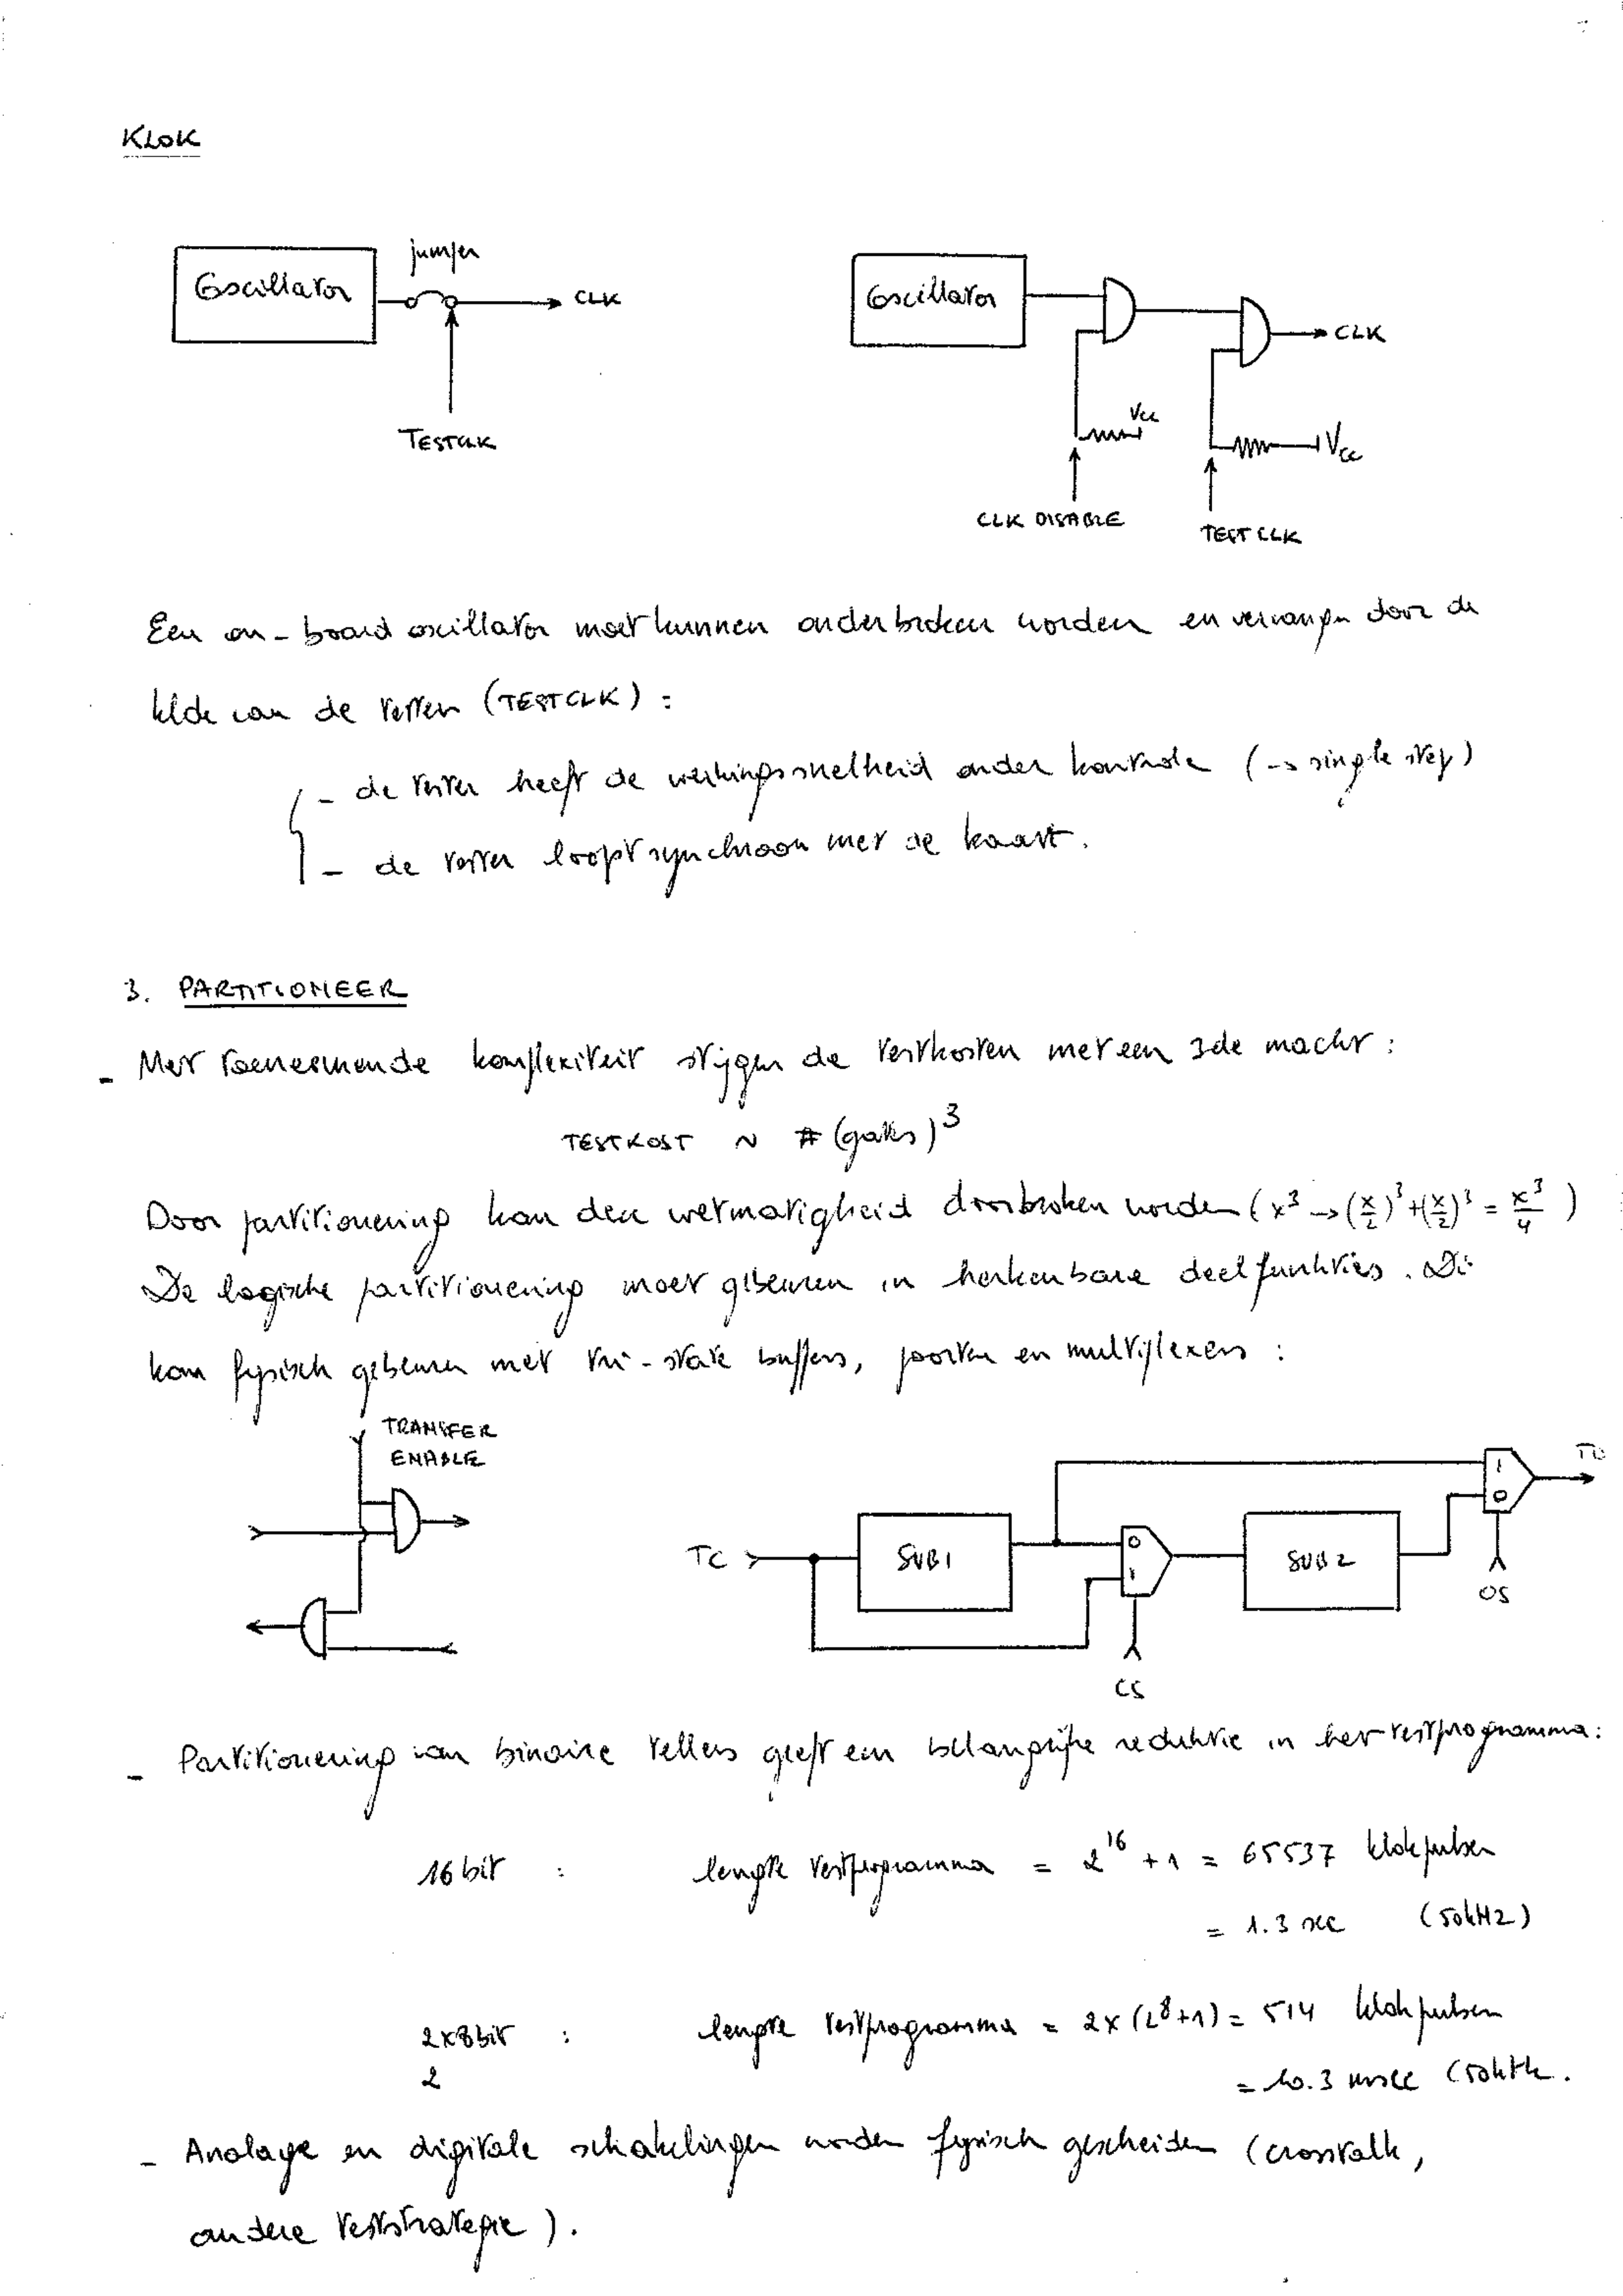 KLOK
Oscillator
jumper
CLK
TESTCLK
Oscillator
CLK
Vcc
Vcc
CLK DISABLE
TEST CLK
Een on-board oscillator moet kunnen onderbroken worden en vervangen door de
klok van de tester (TESTCLK) :
- de tester heeft de werkingssnelheid onder kontrole (→ single step)
- de tester loopt synchroon met de kaart.
3. PARTITIONEER
- Met toenemende komplexiteit stijgen de testkosten met een 3de macht :
TESTKOST ~ #(gates)³
Door partitionering kan deze wetmatigheid doorbroken worden (x³ → (x/2)³+(x/2)³ = x³/4)
De logische partitionering moet gebeuren in herkenbare deelfunkties. Dit
kan fysisch gebeuren met tri-state buffers, poorten en multiplexers :
TRANSFER
ENABLE
TC
SUB1
0
1
CS
SUB2
1
0
OS
- Partitionering van binaire tellers geeft een belangrijke reduktie in het testprogramma:
16 bit : lengte testprogramma = 2¹⁶ + 1 = 65537 klokpulsen
= 1.3 sec (50kHz)
2x8bit : lengte testprogramma = 2x(2⁸+1) = 514 klokpulsen
2
= 10.3 msec (50kHz.
- Analoge en digitale schakelingen worden fysisch gescheiden (crosstalk,
andere teststrategie).